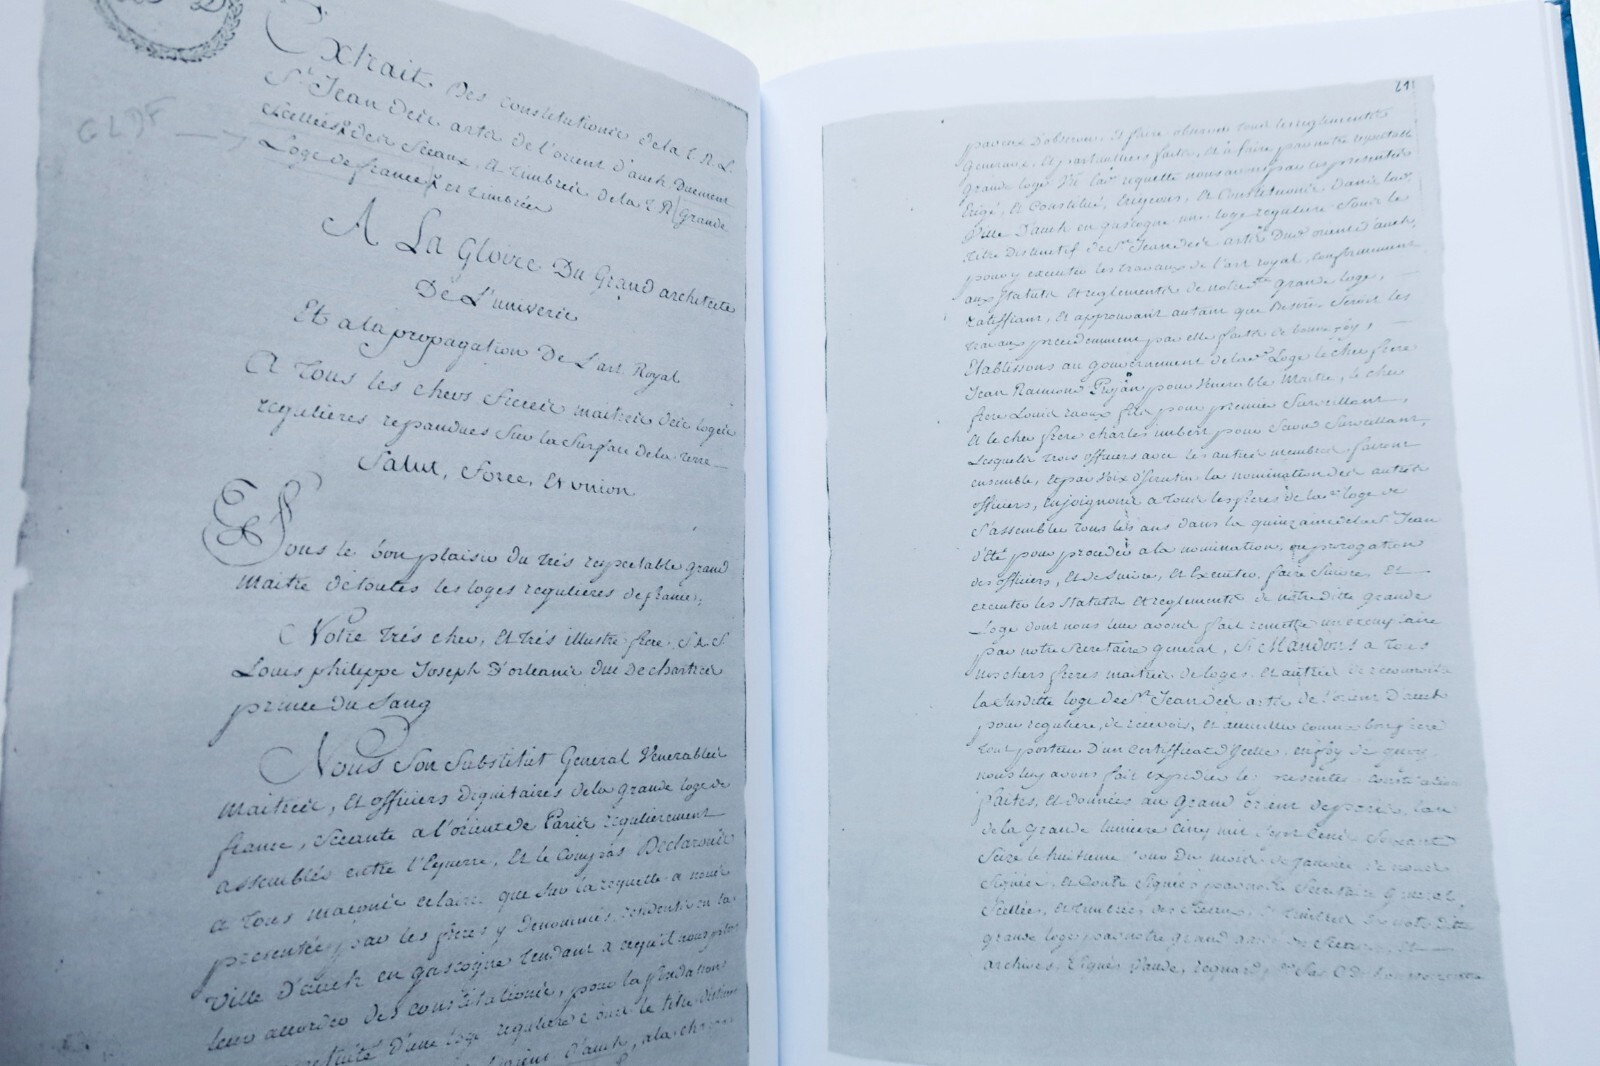 GLDF
Extrait Des constitutions de la T. R. L.
St Jean des arts de l'orient d'auch Duement
scellées des Sceaux et timbrée de la T R grande
Loge de france et timbrée
A La Gloire Du Grand architecte
De L'univers
Et a la propagation De L'art Royal
A Tous les chers freres maitres des loges
regulieres repandues sur la surface de la terre
Salut, force, Et union
Sous le bon plaisir du très respectable grand
Maitre de toutes les loges regulieres de france,
Notre très cher, Et très illustre frere S. A. S
Louis philippe Joseph D'orleans duc De chartres
prince du Sang
Nous Son Substitut General Venerables
Maitres, Et officiers Dignitaires de la grande loge de
france, Séeante a l'orient de Paris regulierement
assemblés entre l'Equerre, Et le Compas Déclarons
a Tous maçons eclairés que sur la requette a nous
presentée par les freres y denommés, residents en la
Ville D'auch en gascogne tendant a ce qu'il nous plut
leur accorder des constitutions, pour la fondation
d'une loge reguliere sous le titre distinc
d'auch, a la
211
par eux D'observer, Et faire observer tous les reglements
Generaux, Et particuliers faits, et à faire par notre respectable
Grande loge requette nous avons par les presentes
Erigé, Et Constitué, Erigeons, Et Constituons Dans la
Ville D'auch en gascogne une loge reguliere sous le
titre Distinctif de St Jean des arts orient d'auch,
pour y executer les travaux de l'art royal, conformement
aux statuts Et reglements de notre grande loge,
ratiffiant, Et approuvant autant que Besoin Seroit les
travaux precedemment par elle faits
Etablissons au gouvernement de la Loge le cher frere
Jean Raimond Pujan pour Venerable Maitre, le cher
frere Louis raoux fils pour premier Surveillant,
Et le cher frere charles imbert pour second Surveillant,
Lesquels trois officiers avec les autres membres fairont
ensemble, Et par voix la nomination des autres
officiers, Enjoignons a tous les freres de la loge de
s'assembler tous les ans dans la quinzaine de St Jean
d'Eté pour proceder a la nomination, ou prorogation
des officiers, Et de suivre, Et Executer, faire suivre, Et
executer les statuts Et reglements de notre ditte Grande
Loge dont nous leur avons fait remettre un exemplaire
par notre Secretaire general, Si Mandons a tous
nos chers freres maitres de loges, Et autres
la susditte loge de St Jean des arts de l'orient d'auch
pour reguliere, de recevoir, Et accueillir comme bon frere
tout porteur D'un Certifficat d'ycelle, en foy de quoy
nous luy avons fait expedier les presentes constitutions
faites, Et données au Grand orient de paris, L'an
de la Grande lumiere Cinq mil Sept Cent Soixante
Seize le huitieme jour Du mois de Janvier de nous
Signées, Et Contre Signées par notre Secretaire General,
Scellées, et timbrées, des Sceaux, Et timbres de notre Ditte
grande loge par notre grand garde des Sceaux, Et
archives. Signés